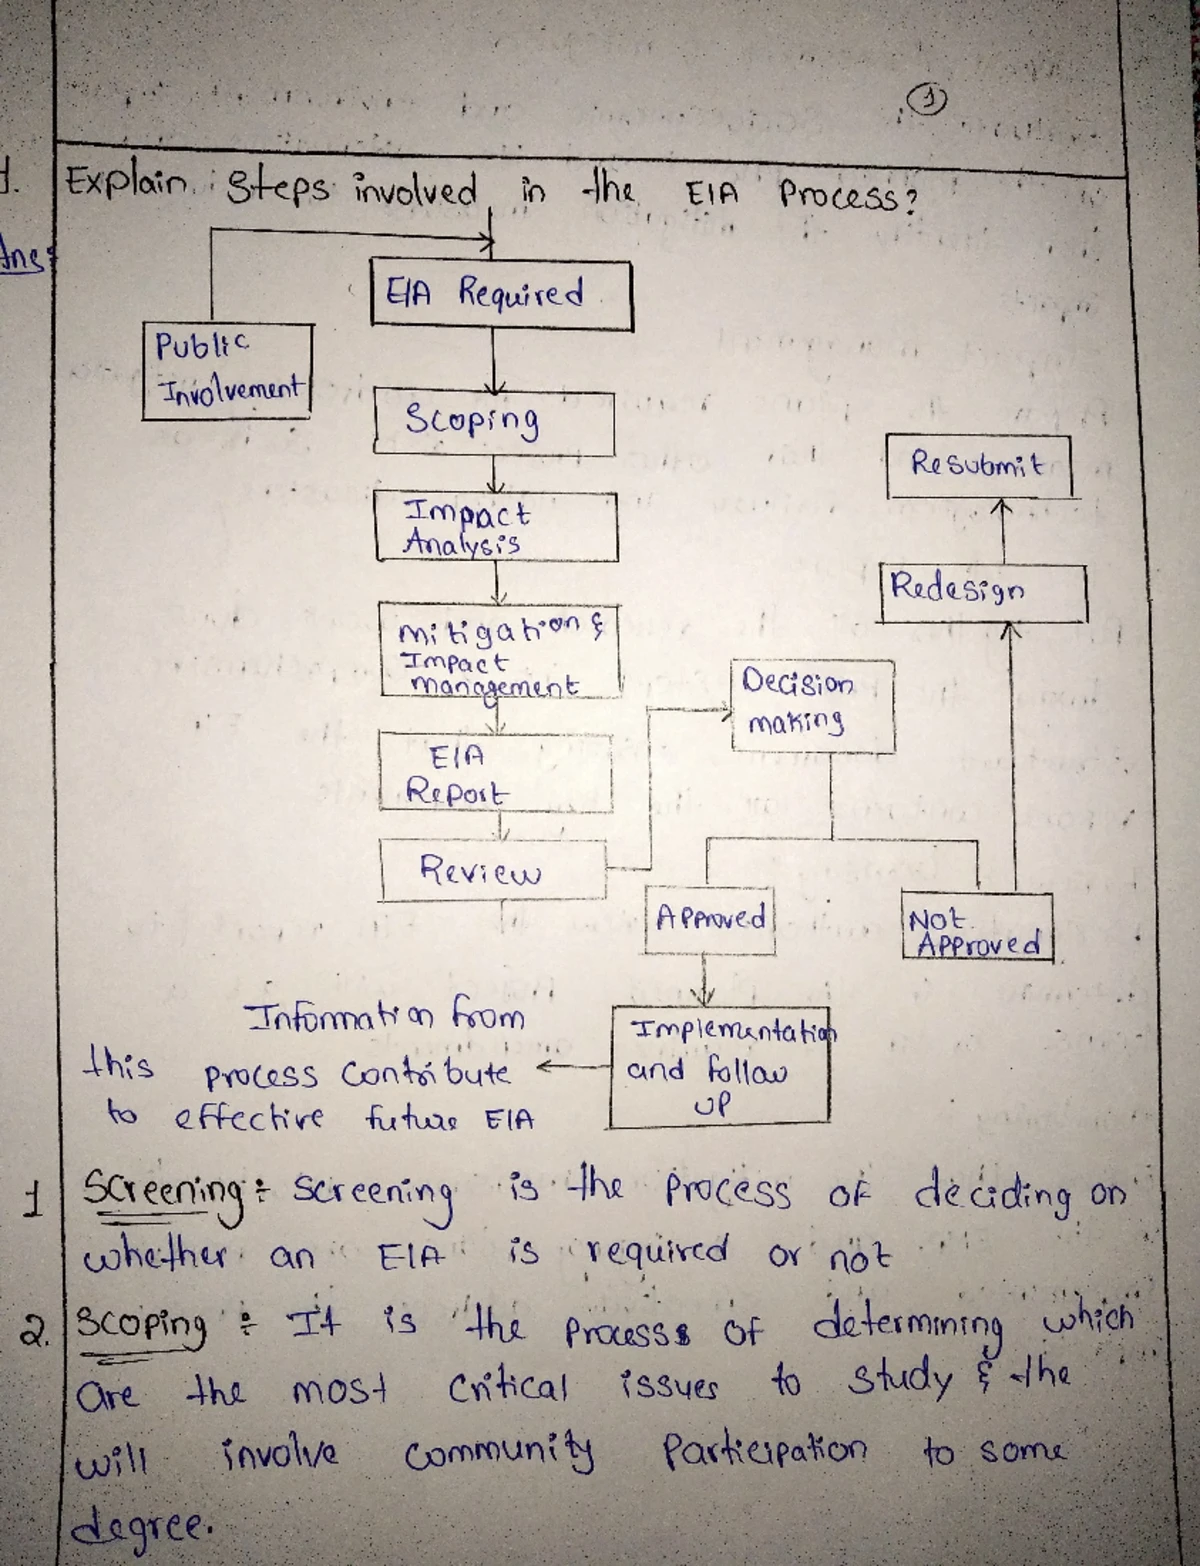 1
1. Explain steps involved in the EIA Process?
Ans:
EIA Required
Public
Involvement
Scoping
Resubmit
Impact
Analysis
Redesign
mitigation &
Impact
management
Decision
making
EIA
Report
Review
Approved
Not
Approved
Information from
this process contribute
to effective future EIA
Implementation
and follow
up
1 Screening: screening is the process of deciding on
whether an EIA is required or not
2. Scoping: It is the processs of determining which
are the most critical issues to study & the
will involve community Participation to some
degree.